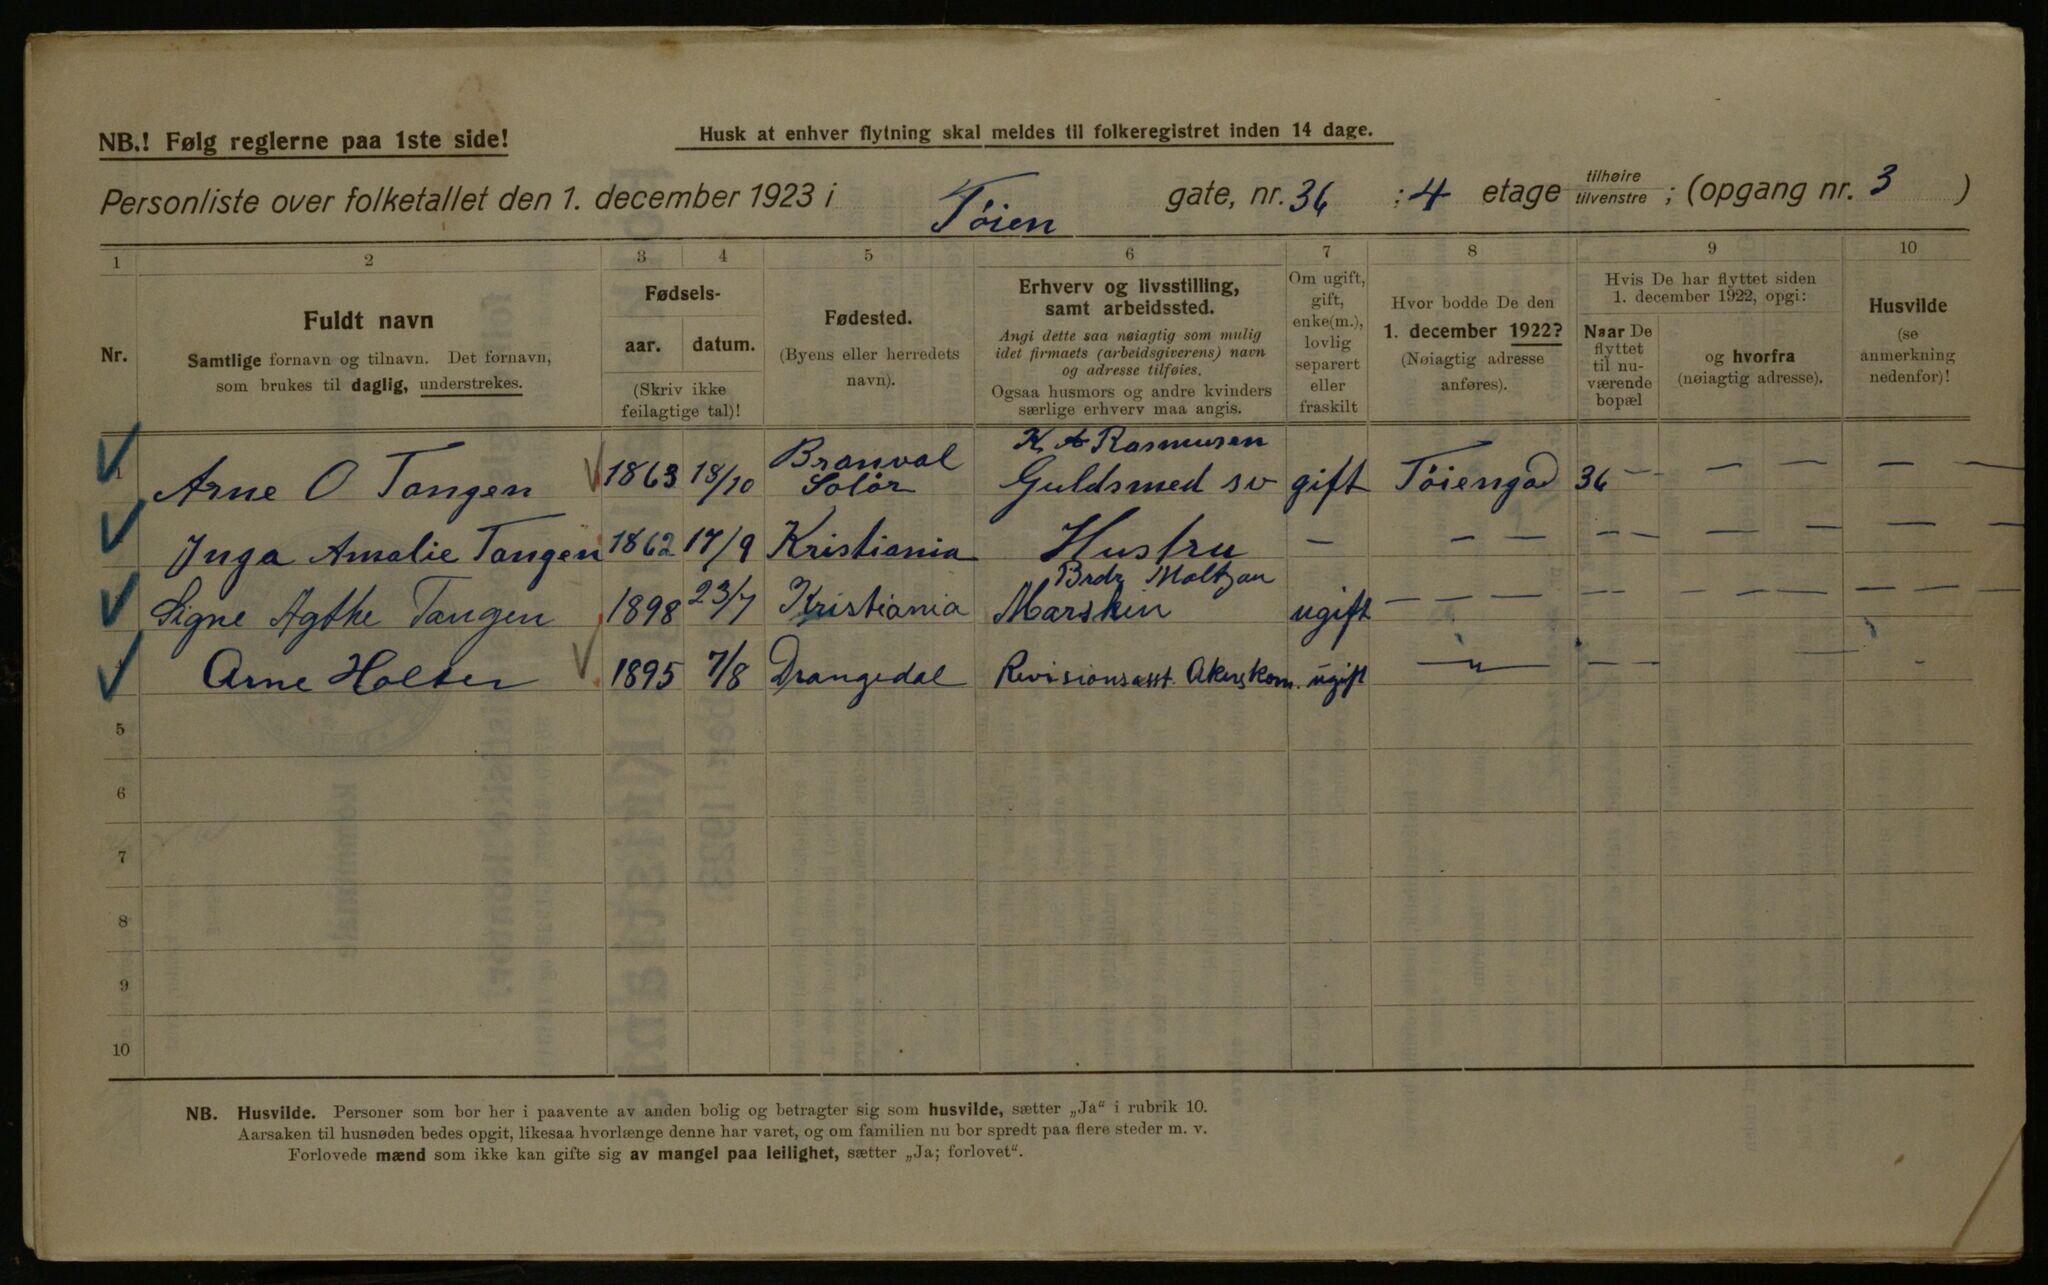 NB.! Følg reglerne paa 1ste side!
Husk at enhver flytning skal meldes til folkeregistret inden 14 dage.
Personliste over folketallet den 1. december 1923 i Tøien gate, nr. 36 : 4 etage tilhøire tilvenstre ; (opgang nr. 3 )
1 2 3 4 5 6 7 8 9 10
Nr.
Fuldt navn
Samtlige fornavn og tilnavn. Det fornavn,
som brukes til daglig, understrekes.
Fødsels-
aar. datum.
(Skriv ikke
feilagtige tal)!
Fødested.
(Byens eller herredets
navn).
Erhverv og livsstilling,
samt arbeidssted.
Angi dette saa nøiagtig som mulig
idet firmaets (arbeidsgiverens) navn
og adresse tilføies.
Ogsaa husmors og andre kvinders
særlige erhverv maa angis.
Om ugift,
gift,
enke(m.),
lovlig
separert
eller
fraskilt
Hvor bodde De den
1. december 1922?
(Nøiagtig adresse
anføres).
Hvis De har flyttet siden
1. december 1922, opgi:
Naar De
flyttet
til nu-
værende
bopæl
og hvorfra
(nøiagtig adresse).
Husvilde
(se
anmerkning
nedenfor)!
K A Rasmusen
1 Arne O Tangen 1863 18/10 Branval Solør Guldsmed sv gift Tøiengad 36 — — — — — —
Inga Amalie Tangen 1862 17/9 Kristiania Hustru — — — — — — — — — —
Brdr Moltzau
Signe Agthe Tangen 1898 23/7 Kristiania Marskin ugift — — — — — — — — — —
Arne Holter 1895 7/8 Drangedal Revisionsasst. Akerskom. ugift — " — — — —
5
6
7
8
9
10
NB. Husvilde. Personer som bor her i paavente av anden bolig og betragter sig som husvilde, sætter „Ja“ i rubrik 10.
Aarsaken til husnøden bedes opgit, likesaa hvorlænge denne har varet, og om familien nu bor spredt paa flere steder m. v.
Forlovede mænd som ikke kan gifte sig av mangel paa leilighet, sætter „Ja; forlovet“.